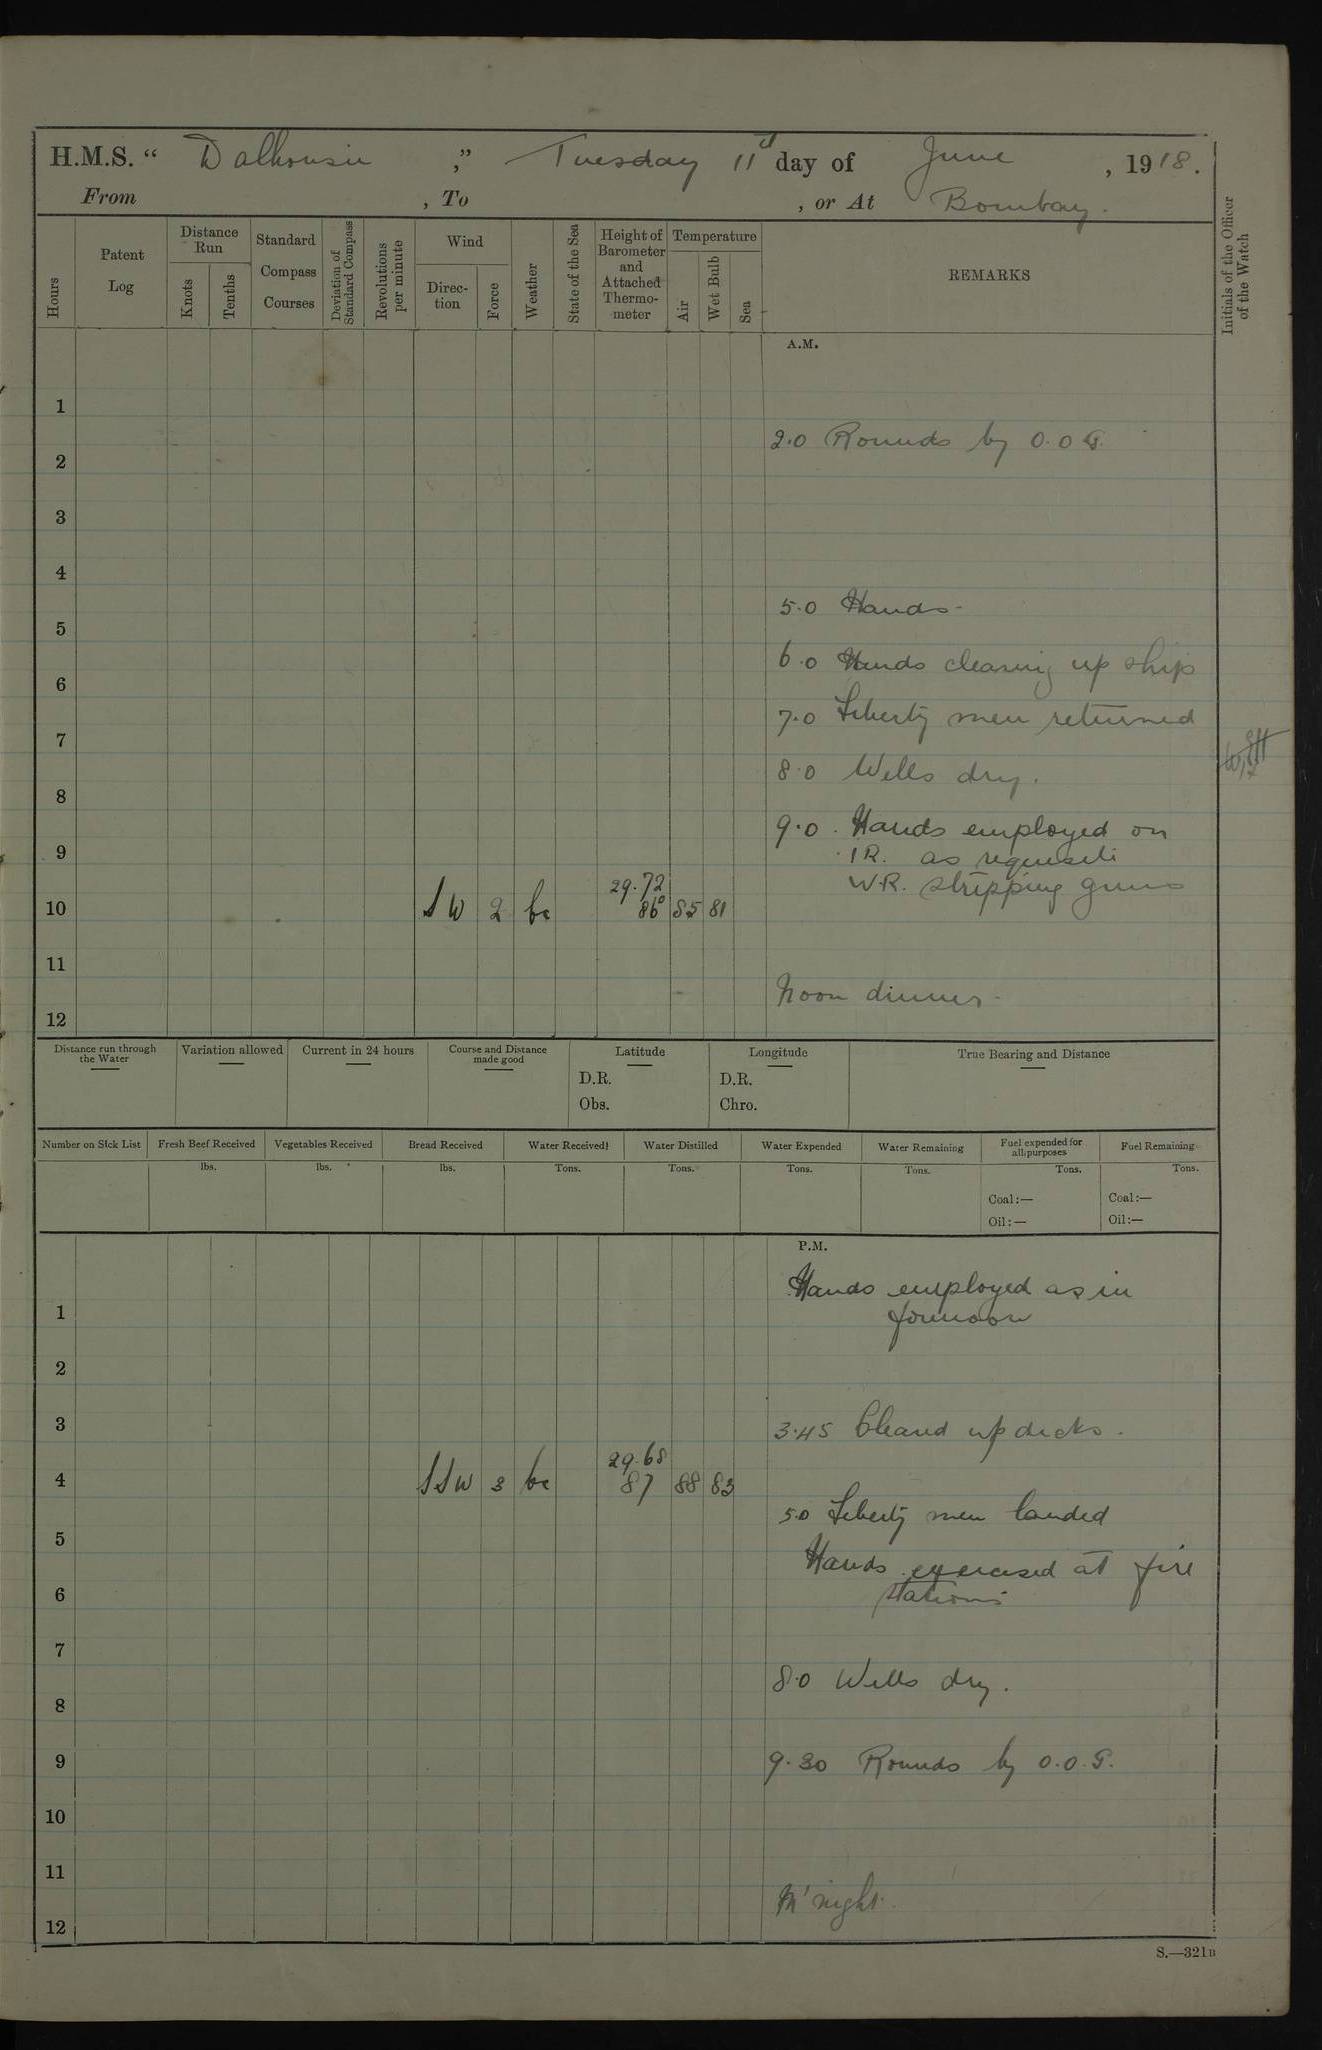 H.M.S. " Dalhousie ," Tuesday 11th day of June , 1918.
From , To , or At Bombay.
Hours
Patent Log
Distance Run
Knots
Tenths
Standard Compass Courses
Deviation of Standard Compass
Revolutions per minute
Wind
Direc-tion
Force
Weather
State of the Sea
Height of Barometer and Attached Thermo-meter
Temperature
Air
Wet Bulb
Sea
REMARKS
Initials of the Officer of the Watch
A.M.
1
2.0 Rounds by O.O.G.
2
3
4
5.0 Hands
5
6.0 Hands cleaning up ship
6
7.0 Liberty men returned
7
8.0 Wells dry.
8
9.0 Hands employed on
9
I R. as requisite
W.R. stripping guns
29.72
10 SW 2 bc 86° 85 81
11
Noon dinner
12
Distance run through the Water
Variation allowed
Current in 24 hours
Course and Distance made good
Latitude
D.R.
Obs.
Longitude
D.R.
Chro.
True Bearing and Distance
Number on Sick List
Fresh Beef Received
lbs.
Vegetables Received
lbs.
Bread Received
lbs.
Water Received
Tons.
Water Distilled
Tons.
Water Expended
Tons.
Water Remaining
Tons.
Fuel expended for all purposes
Tons.
Coal:—
Oil:—
Fuel Remaining
Tons.
Coal:—
Oil:—
P.M.
Hands employed as in
1
forenoon
2
3
3.45 Cleared up decks.
29.68
4 SSW 3 bc 87 88 83
5.0 Liberty men landed
5
Hands exercised at fire
6
stations
7
8.0 Wells dry.
8
9
9.30 Rounds by O.O.G.
10
11
M'night.
12
S.—321B